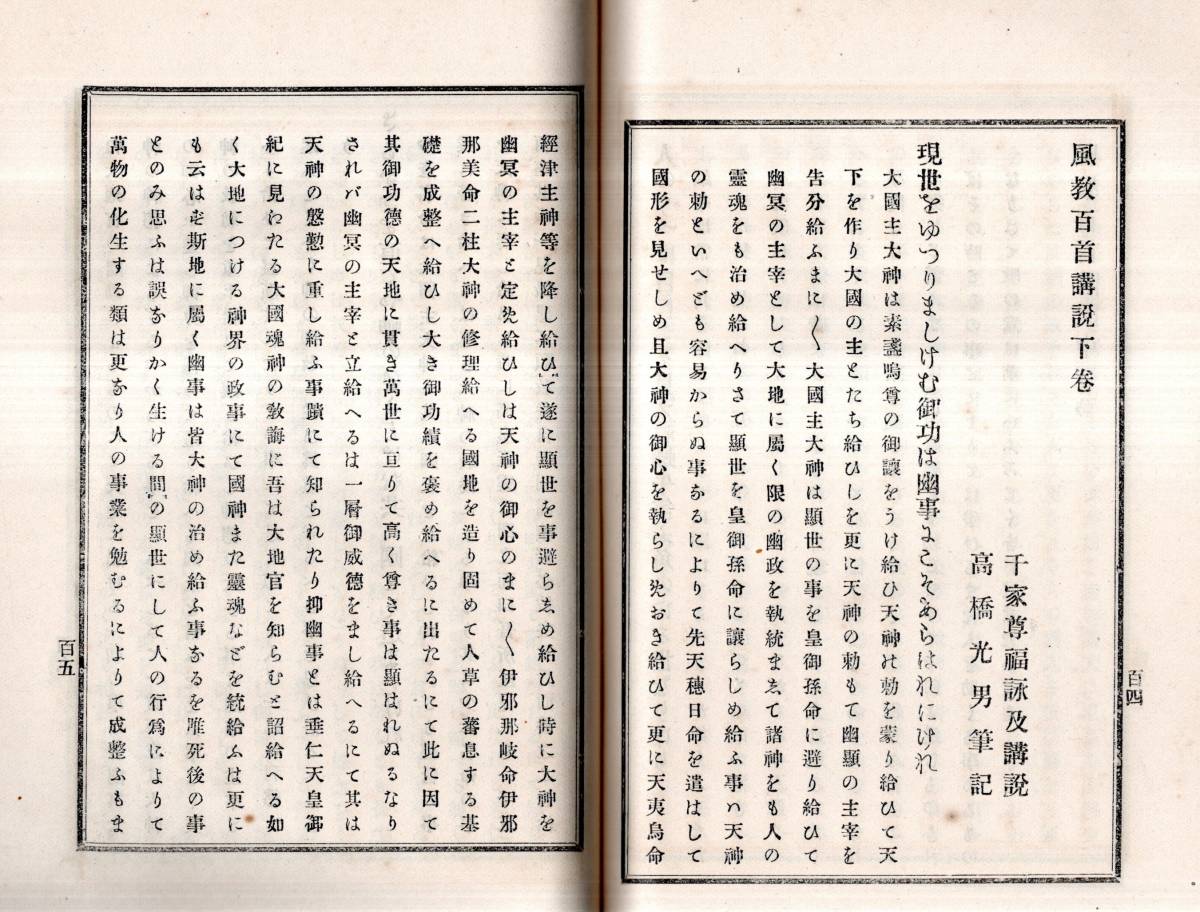 風教百首講說下卷
千家尊福詠及講說
高橋光男筆記
現世をゆつりましけむ御功は幽事にこそあらはれにけれ
大國主大神は素盞嗚尊の御讓をうけ給ひ天神の勅を蒙り給ひて天
下を作り大國の主とたち給ひしを更に天神の勅もて幽顯の主宰を
告分給ふまに〱大國主大神は顯世の事を皇御孫命に避り給ひて
幽冥の主宰として大地に屬く限の幽政を執統まゑて諸神をも人の
靈魂をも治め給へりさて顯世を皇御孫命に讓らしめ給ふ事ハ天神
の勅といへども容易からぬ事なるによりて先天穗日命を遣はして
國形を見せしめ且大神の御心を執らしめおき給ひて更に天夷鳥命
百四
經津主神等を降し給ひて遂に顯世を事避らゑめ給ひし時に大神を
幽冥の主宰と定め給ひしは天神の御心のまに〱伊邪那岐命伊邪
那美命二柱大神の修理給へる國地を造り固めて人草の蕃息する基
礎を成整へ給ひし大き御功績を褒め給へるに出たるにて此に因て
其御功德の天地に貫き萬世に亘りて高く尊き事は顯はれぬるなり
されバ幽冥の主宰と立給へるは一層御威德をまし給へるにて其は
天神の慇懃に重し給ふ事蹟にて知られたり抑幽事とは垂仁天皇御
紀に見わたる大國魂神の敎誨に吾は大地官を知らむと詔給へる如
く大地につける神界の政事にて國神また靈魂などを統給ふは更に
も云はず斯地に屬く幽事は皆大神の治め給ふ事なるを唯死後の事
とのみ思ふは誤なりかく生ける間の顯世にして人の行爲によりて
萬物の化生する類は更なり人の事業を勉むるによりて成整ふもま
百五